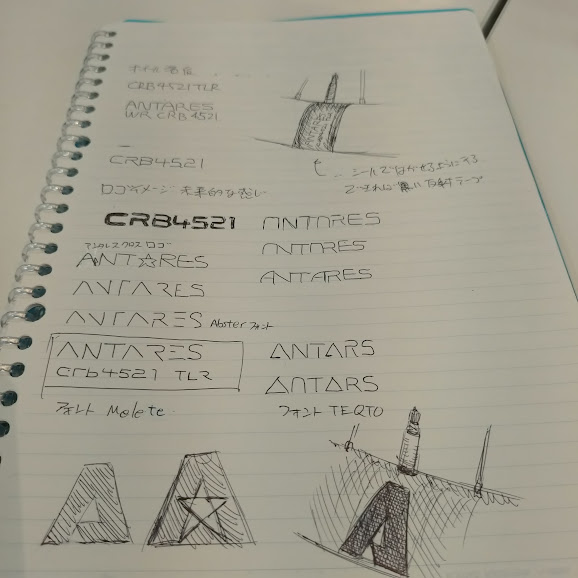 CRB4521 TLR
ANTARES
WR CRB 4521
CRB4521
ロゴイメージ 未来的な感じ
CRB4521
ANTARES
アンタレスクロス ロゴ
ANT☆RES
ANTARES
ANTARES
ANTARES
ANTARES Abster フォント
ANTARES
crb4521 TLR
ANTARS
ANTARS
フォント Malete
フォント TEQTO
A
A
A